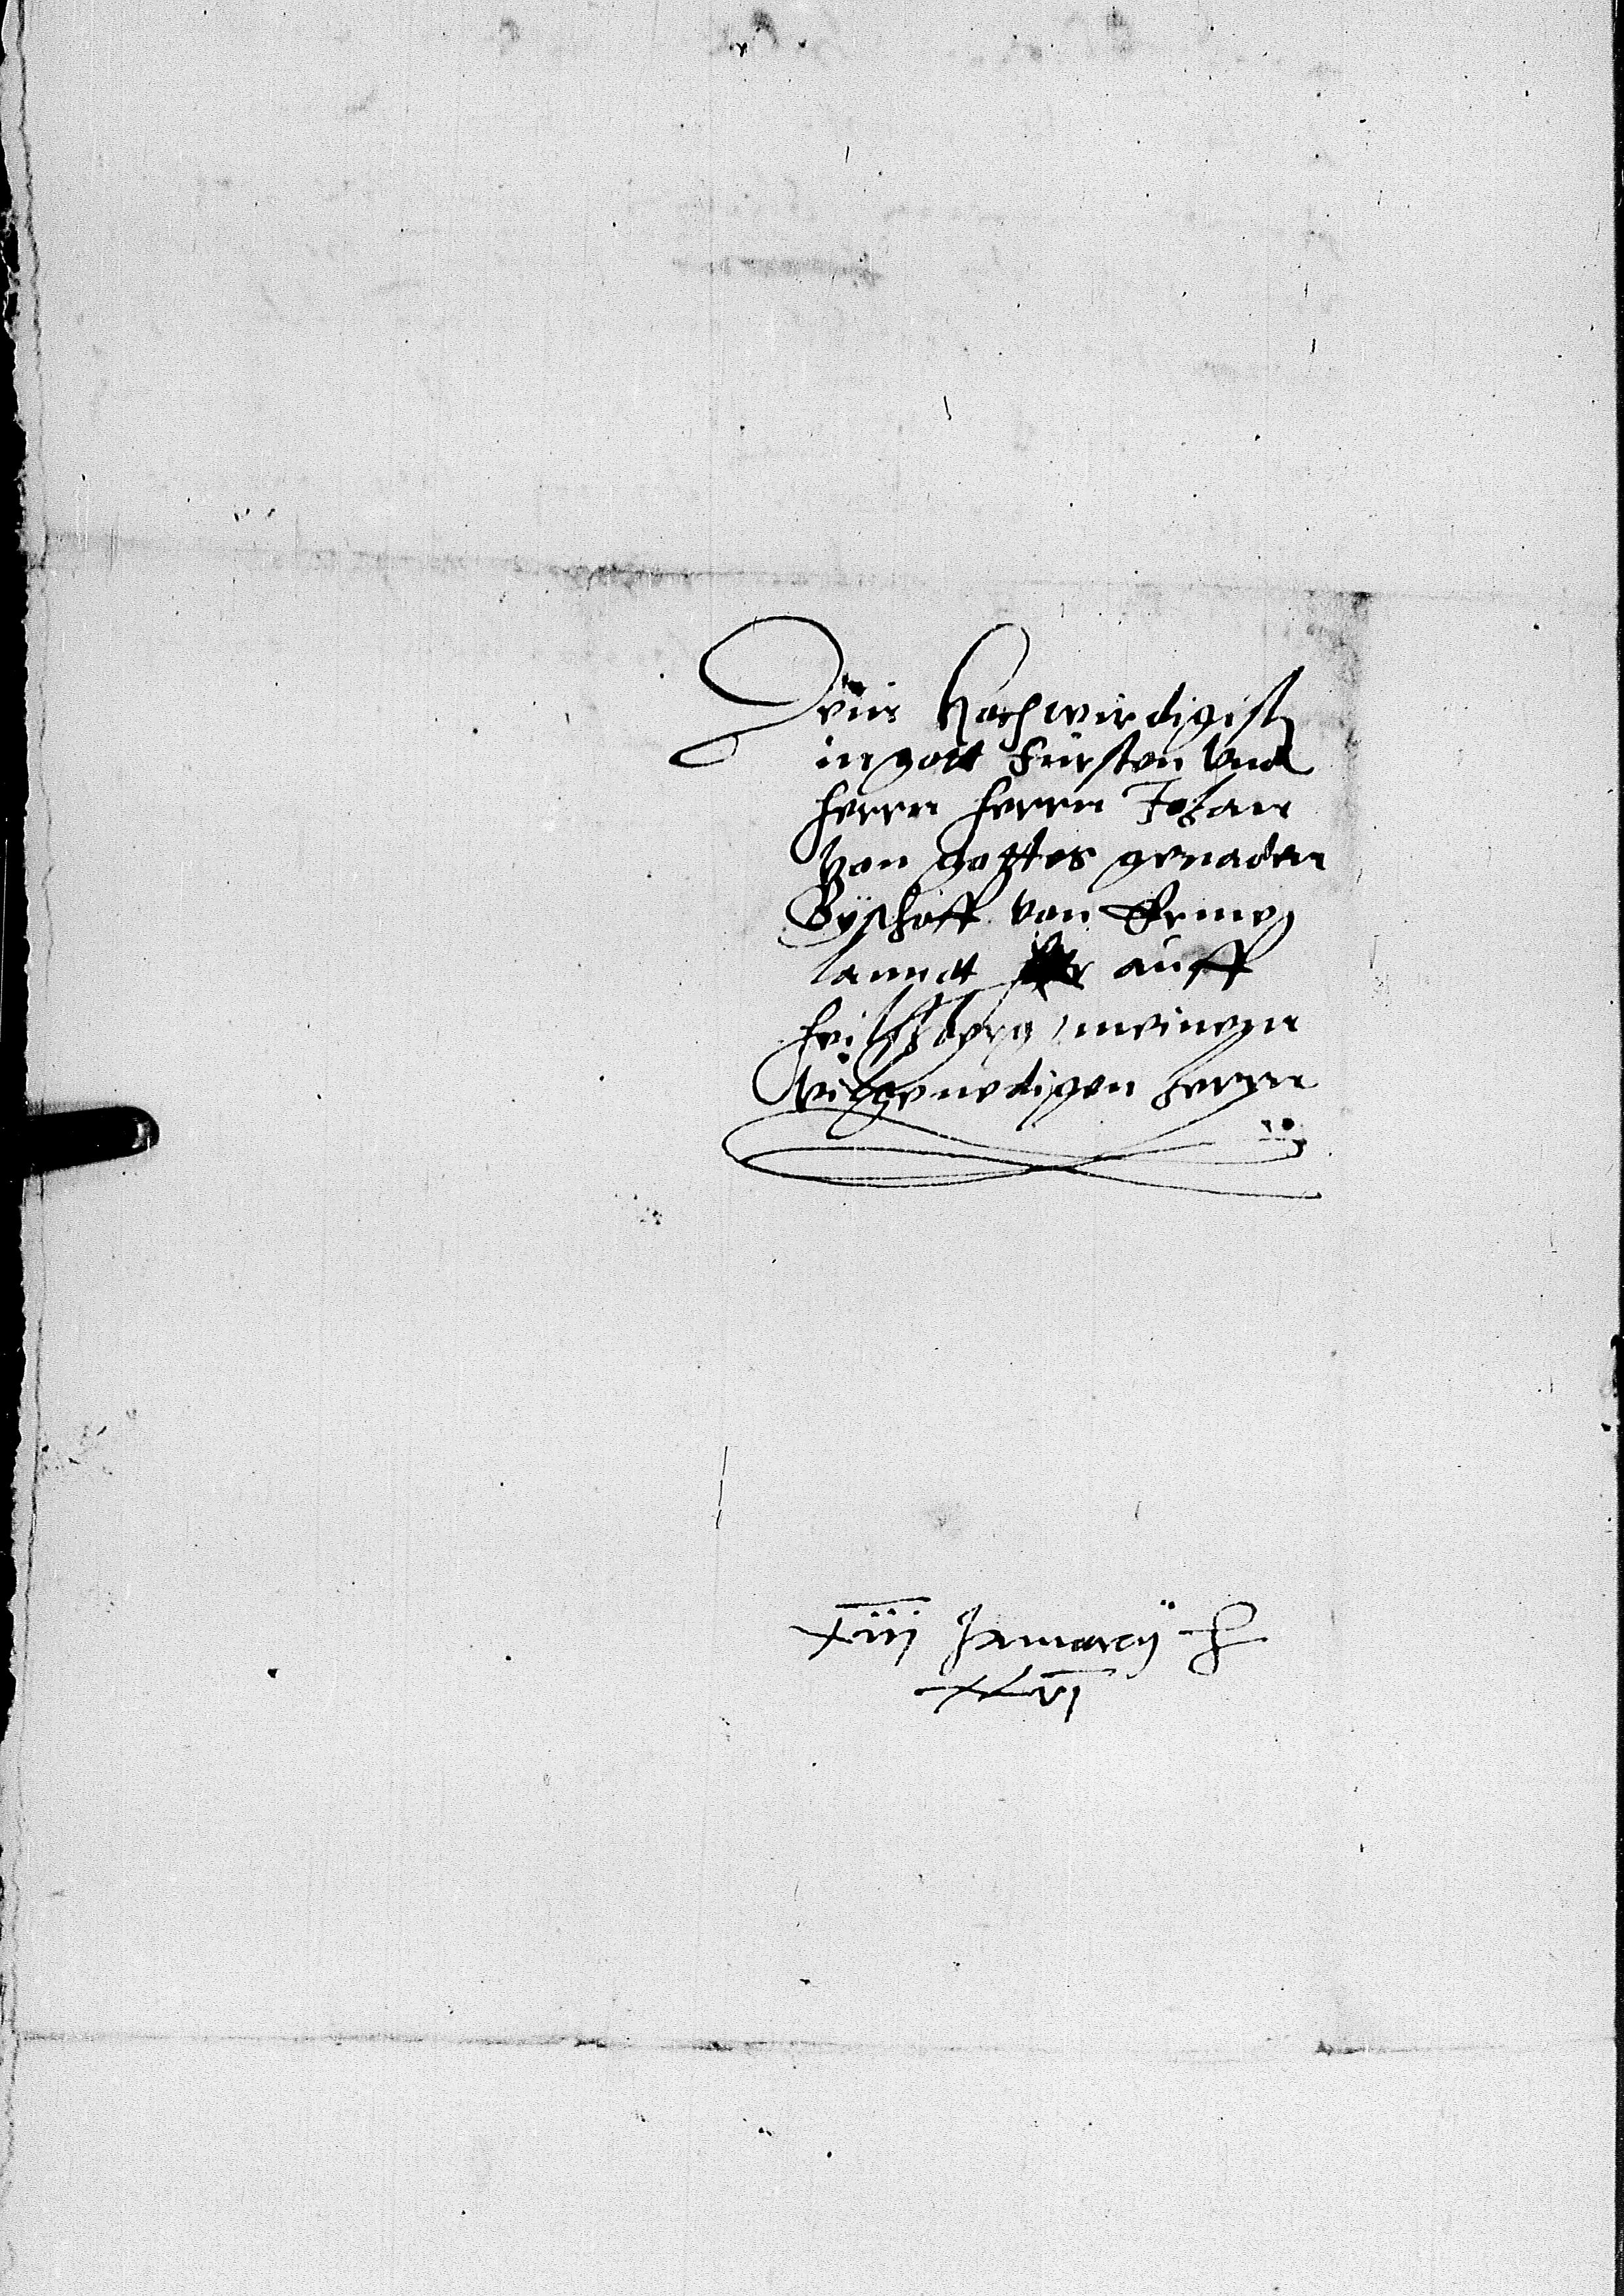 Dem Hochwirdigist
in gott Fürsten vnd
herrn herrn Johan
von gottes genaden
Byschoff von Erme
lanndt auff
heilsberg meinem
vilgenedigen herrn
XIII Januarij
XLVI